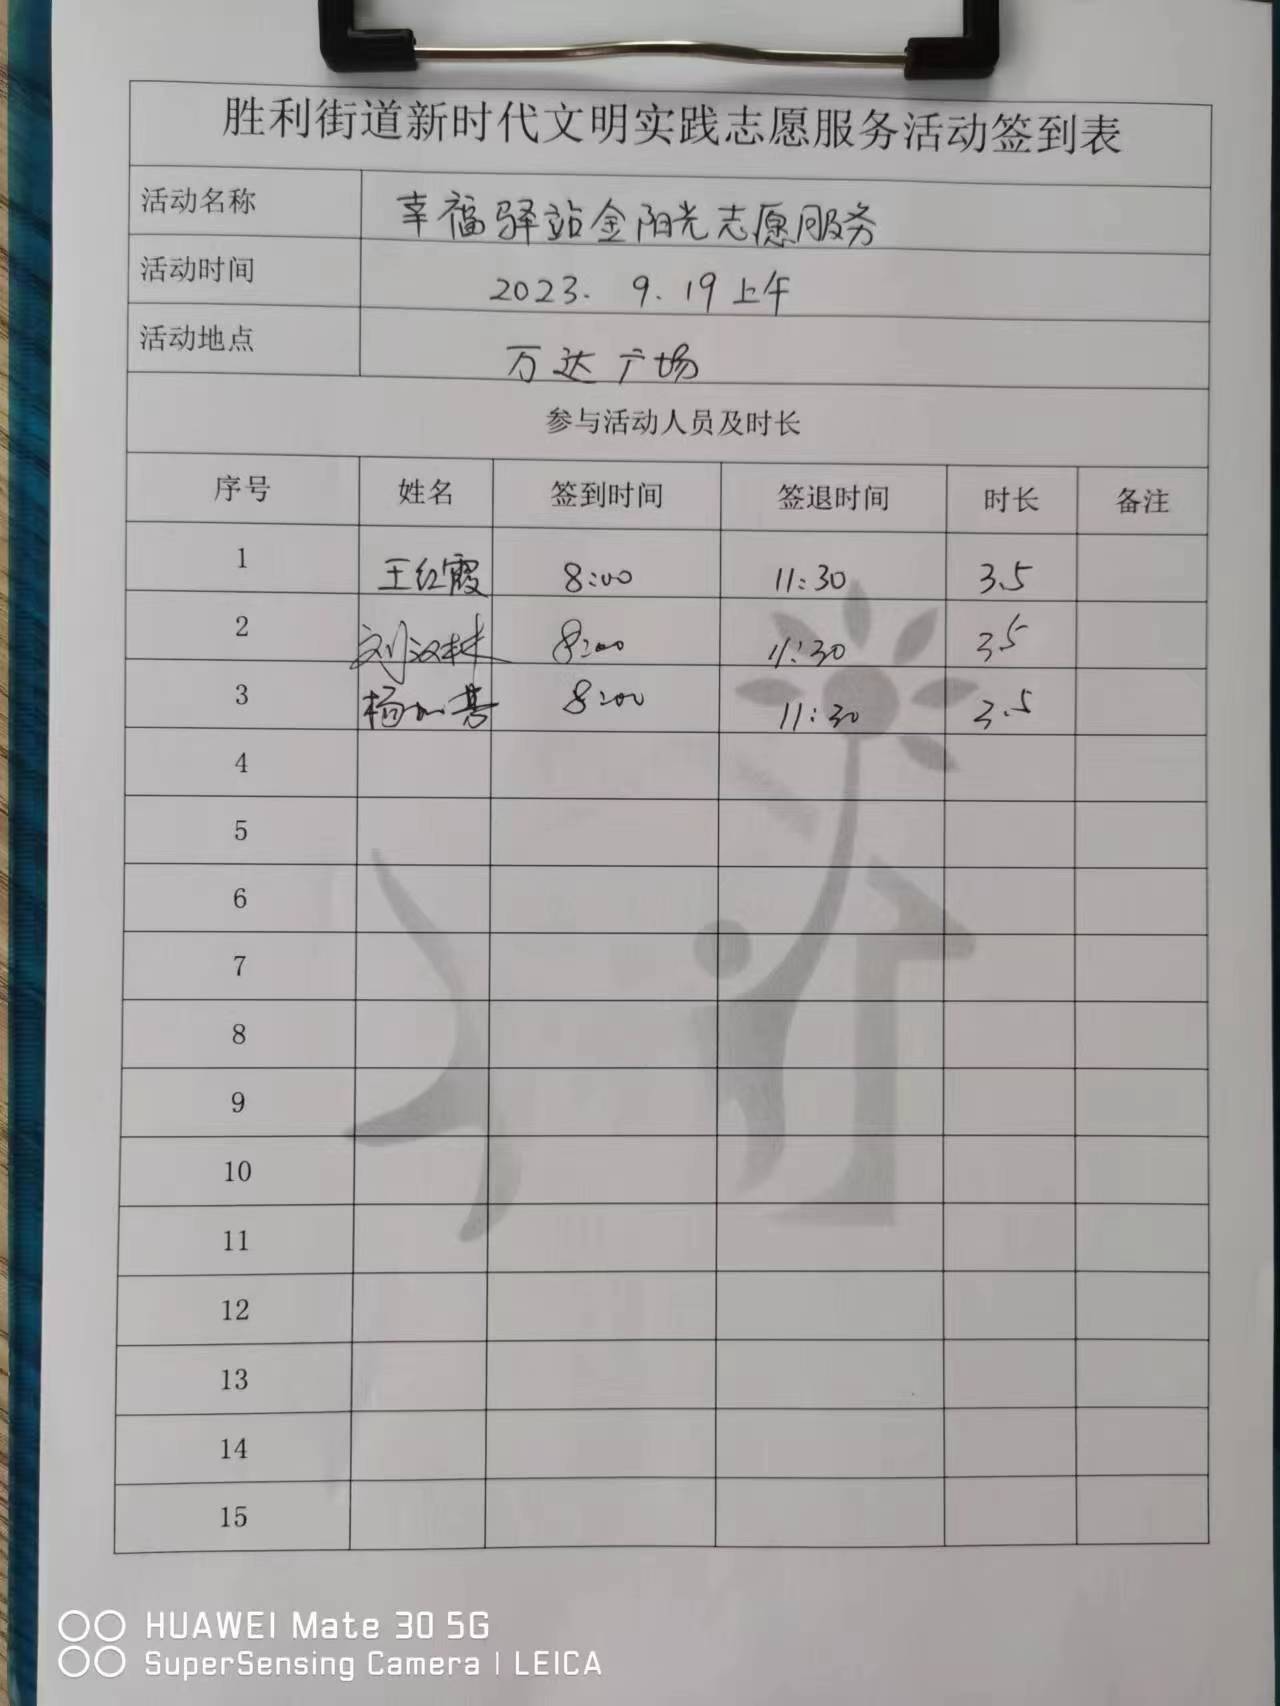 胜利街道新时代文明实践志愿服务活动签到表
活动名称 幸福驿站金阳光志愿服务
活动时间 2023. 9. 19上午
活动地点 万达广场
参与活动人员及时长
序号 姓名 签到时间 签退时间 时长 备注
1 王红霞 8:00 11:30 3.5
2 刘汉林 8:00 11:30 3.5
3 杨 8:00 11:30 3.5
4
5
6
7
8
9
10
11
12
13
14
15
HUAWEI Mate 30 5G
SuperSensing Camera | LEICA